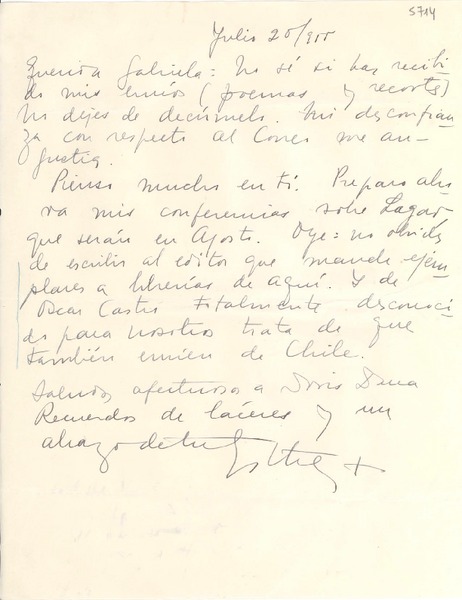 5714
Julio 20/955
Querida Gabriela: No sé si has recibi-
do mis envíos (poemas y recorte)
No dejes de decírmelo. Mi desconfian-
za con respecto al Correo me an-
gustia.
Pienso mucho en ti. Preparo aho-
ra mis conferencias sobre Lagar,
que serán en Agosto. Oye: no olvides
de escribir al editor que mande ejem-
plares a librerías de aquí. Y de
Oscar Castro totalmente desconoci-
do para nosotros trata de que
también envíen de Chile.
Saludos afectuosos a Doris Dana
Recuerdos de Cáceres y un
abrazo de tu Esther